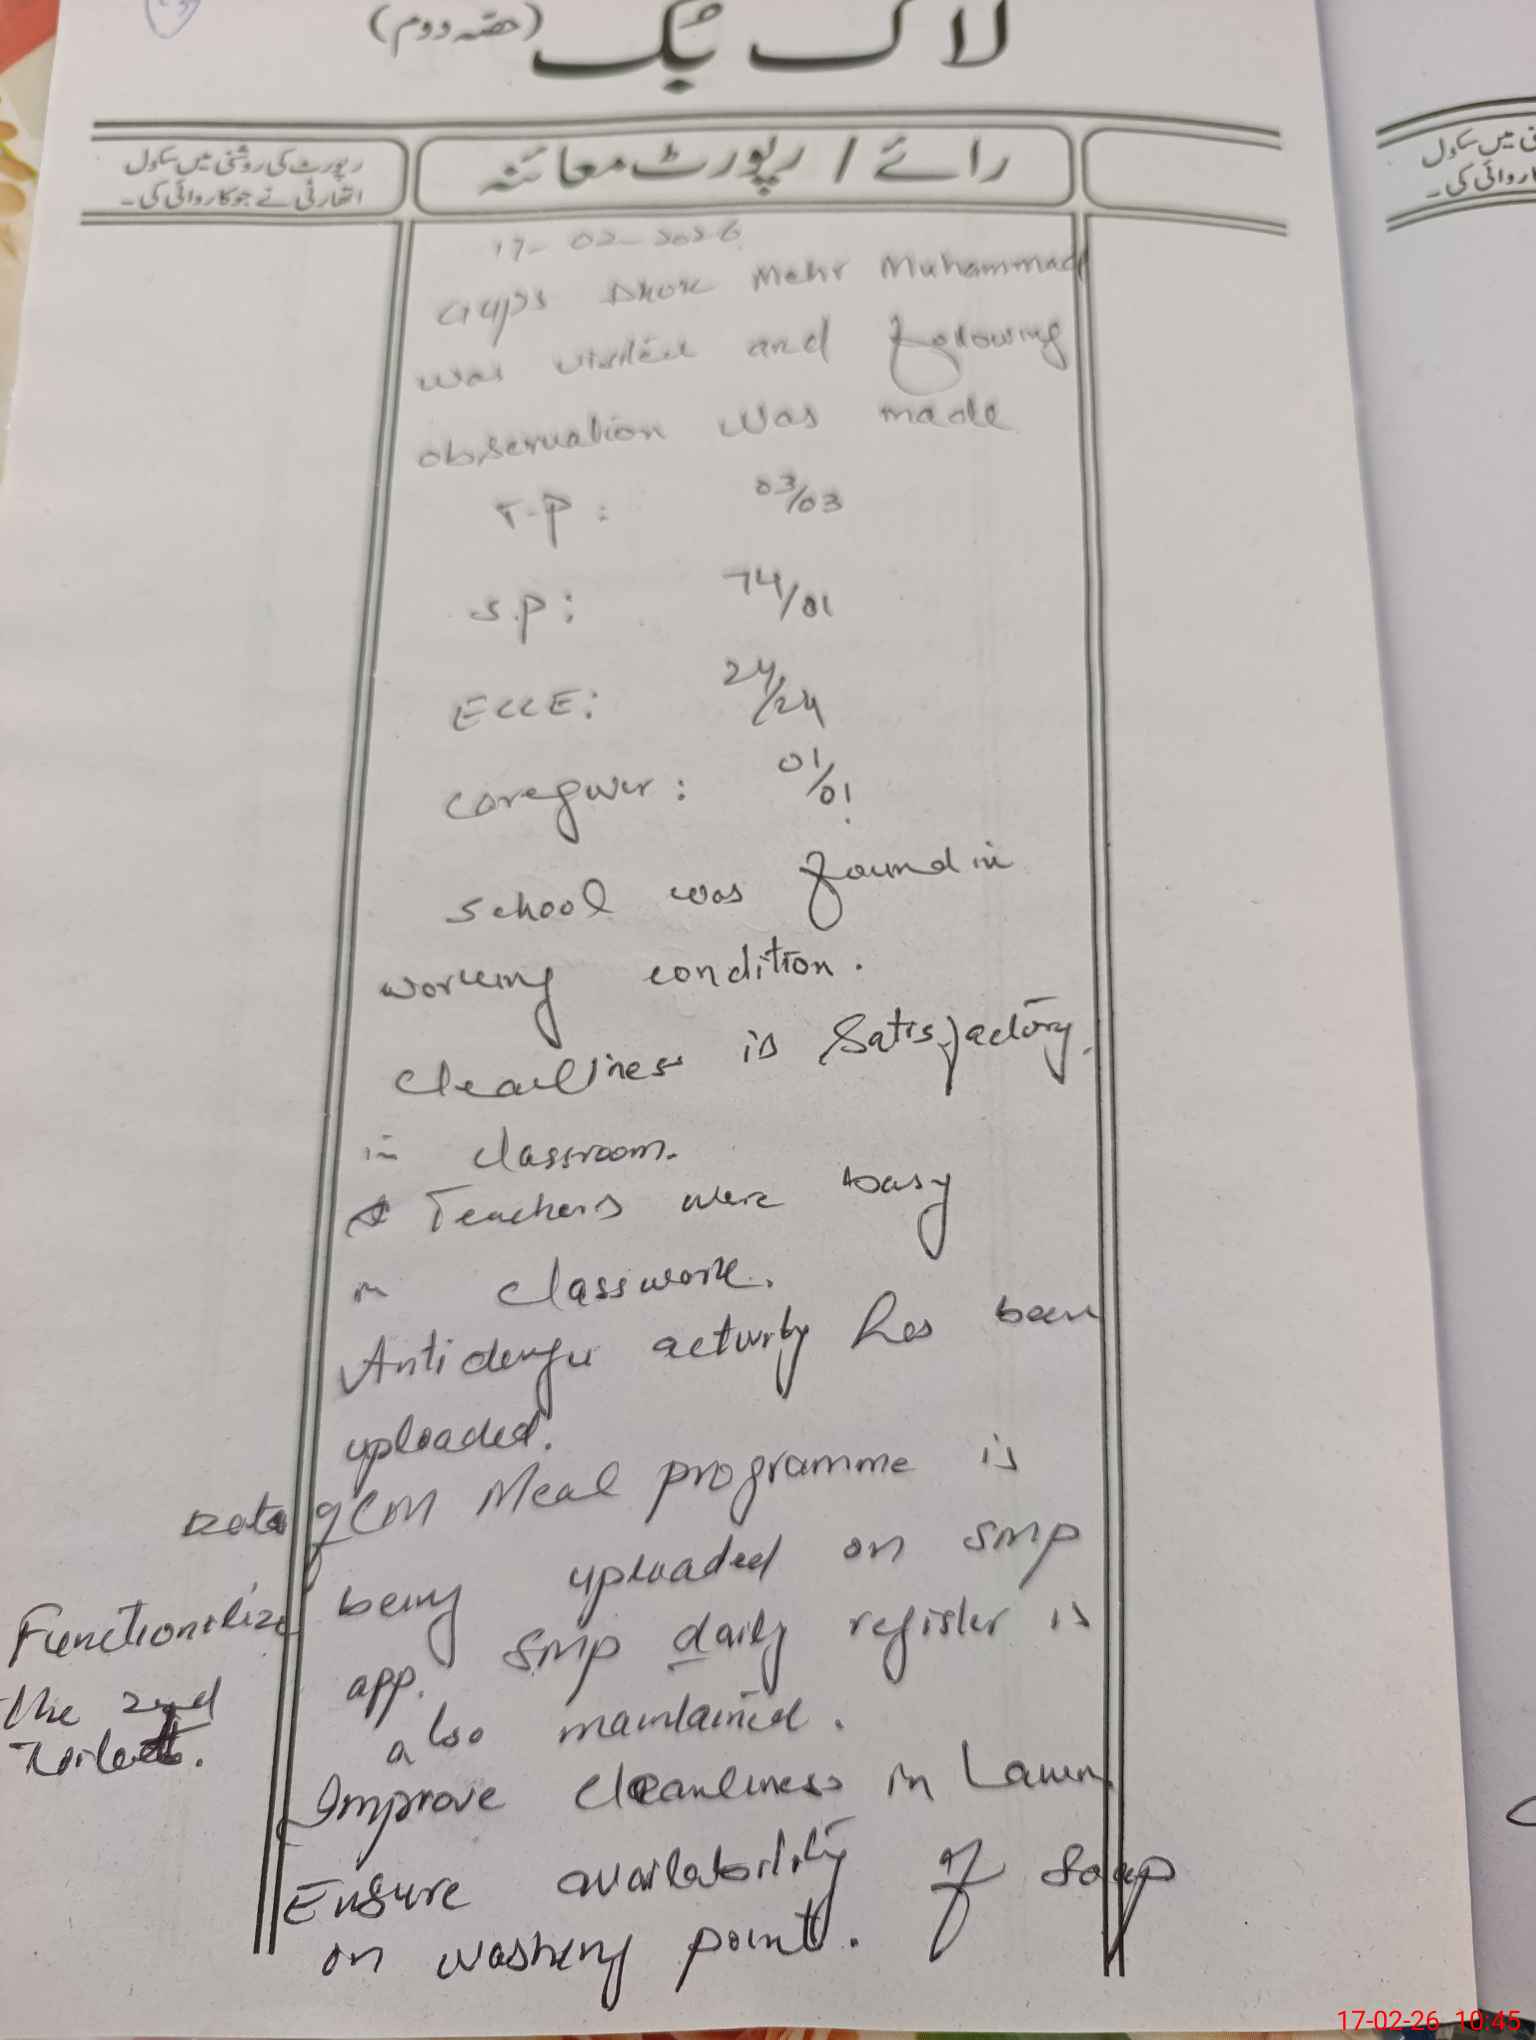 لاگ بک (حصہ دوم)
رائے / رپورٹ معائنہ
رپورٹ کی روشنی میں سکول
اتھارٹی نے جو کاروائی کی۔
17-02-2026
GGPS Mehr Muhammad
was visited and following
observation was made
T.P: 03/03
S.P: 74/
ECCE: 24/24
Caregiver: 01/01
School was found in
working condition.
cleanliness is Satisfactory
in classroom.
Teachers were busy
in classwork.
Anti dengue activity has been
uploaded.
Data of CM Meal programme is
being uploaded on SMP
app. SMP daily register is
also maintained.
Improve cleanliness in Lawn
Ensure availability of Soap
on washing point.
Functionalize
the 2nd
toilet.
میں سکول
کاروائی کی۔
17-02-26 10:45